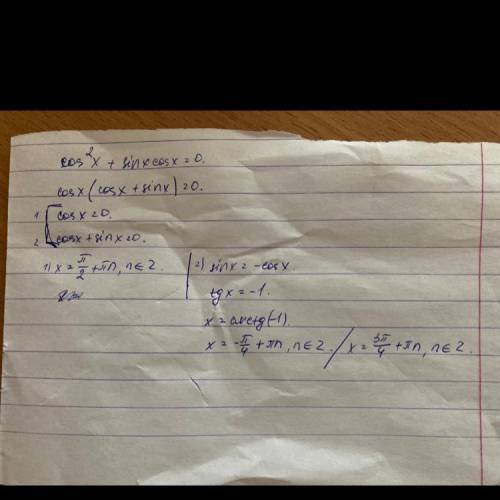 cos²x + sinx cosx = 0.
cosx(cosx + sinx) = 0.
1 [ cosx = 0.
2 [ cosx + sinx = 0.
1) x = π/2 + πn, n ∈ Z.
2) sinx = -cosx.
tgx = -1.
x = arctg(-1).
x = -π/4 + πn, n ∈ Z. / x = 3π/4 + πn, n ∈ Z.